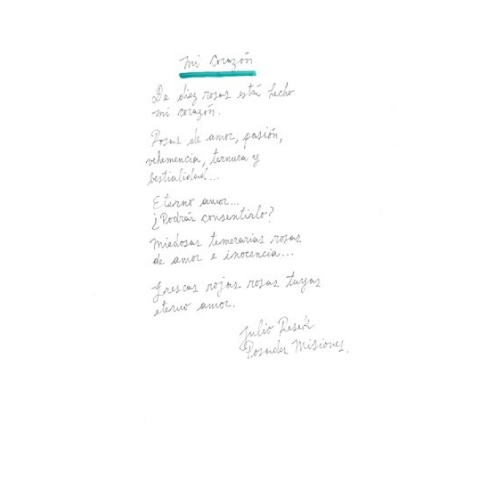 Mi corazón
De diez rosas está hecho
mi corazón.
Rosas de amor, pasión,
vehemencia, ternura y
bestialidad...
Eterno amor...
¿Podrás consentirlo?
Miedosas temerarias rosas
de amor e inocencia...
Frescas rojas rosas tuyas
eterno amor.
Julio
Posadas Misiones.